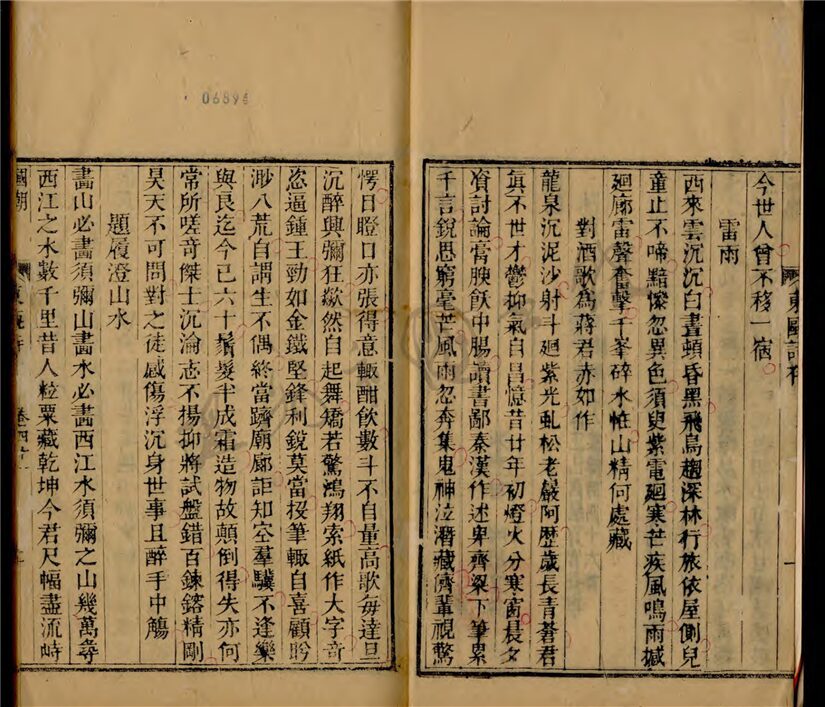 今世人曾不移一宿
雷雨
西來雲沉沉白晝頓昏黑飛鳥趨深林行旅依屋側兒
童止不啼黯慘忽異色須臾紫電廻寒芒疾風鳴雨摵
廻廊雷聲奮擊千峯碎水恠山精何處藏
對酒歌為蔣君赤如作
龍泉沉泥沙射斗廻紫光虬松老巖阿歷歲長青蒼君
眞不世才鬱抑氣自昌憶昔廿年初燈火分寒窗晨夕
資討論膏腴飫中腸讀書鄙秦漢作述卑齊梁下筆累
千言銳思窮毫芒風雨忽奔集鬼神泣潛藏儕輩視驚
愕目瞪口亦張得意輒酣飲數斗不自量高歌每達旦
沉醉興彌狂歘然自起舞矯若驚鴻翔索紙作大字奇
恣逼鍾王勁如金鐵堅鋒利銳莫當投筆輒自喜顧盻
渺八荒自謂生不偶終當躋廟廊詎知空羣驥不逢樂
與良迄今已六十鬚髮半成霜造物故顛倒得失亦何
常所嗟奇傑士沉淪志不揚抑將試盤錯百鍊鎔精剛
昊天不可問對之徒感傷浮沉身世事且醉手中觴
題履澄山水
畵山必畵須彌山畵水必畵西江水須彌之山幾萬尋
西江之水數千里昔人粒粟藏乾坤今君尺幅盡流峙
國朝
卷四十一
06894